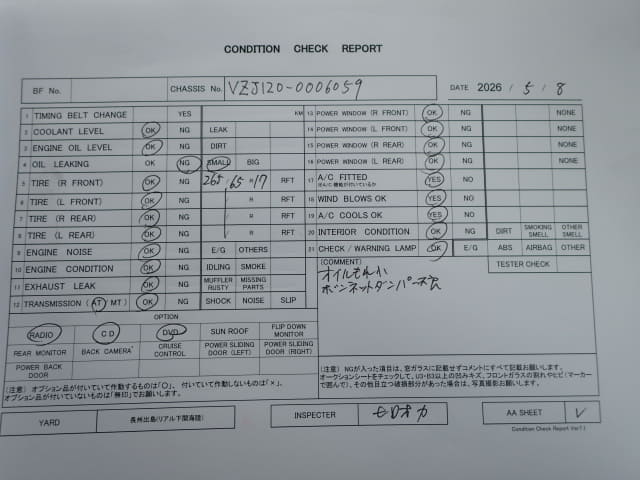 CONDITION CHECK REPORT
BF No. CHASSIS No. VZJ120-0006059 DATE 2026 / 5 / 8
1 TIMING BELT CHANGE YES KM
2 COOLANT LEVEL OK NG LEAK
3 ENGINE OIL LEVEL OK NG DIRT
4 OIL LEAKING OK NG SMALL BIG
5 TIRE (R FRONT) OK NG 265 / 65 R 17 RFT
6 TIRE (L FRONT) OK NG / R RFT
7 TIRE (R REAR) OK NG / R RFT
8 TIRE (L REAR) OK NG / R RFT
9 ENGINE NOISE OK NG E/G OTHERS
10 ENGINE CONDITION OK NG IDLING SMOKE
11 EXHAUST LEAK OK NG MUFFLER RUSTY MISSING PARTS
12 TRANSMISSION (AT/MT) OK NG SHOCK NOISE SLIP
OPTION
RADIO CD DVD SUN ROOF FLIP DOWN MONITOR
REAR MONITOR BACK CAMERA CRUISE CONTROL POWER SLIDING DOOR (LEFT) POWER SLIDING DOOR (RIGHT)
POWER BACK DOOR
(注意) オプション品が付いていて作動するものは「○」、付いていて作動しないものは「×」、
オプション品が付いていないものは「無印」でお願いします。
13 POWER WINDOW (R FRONT) OK NG NONE
14 POWER WINDOW (L FRONT) OK NG NONE
15 POWER WINDOW (R REAR) OK NG NONE
16 POWER WINDOW (L REAR) OK NG NONE
17 A/C FITTED YES NO
18 WIND BLOWS OK YES NO
19 A/C COOLS OK YES NO
20 INTERIOR CONDITION OK NG DIRT SMOKING SMELL OTHER SMELL
21 CHECK / WARNING LAMP OK E/G ABS AIRBAG OTHER
(COMMENT) TESTER CHECK
オイルもれ小
ボンネットダンパー
(注意) NGが入った項目は、窓ガラスに記載せずコメントにすべて記載お願いします。
オークションシートをチェックして、U3・B3以上の凹みキズ、フロントガラスの割れやヒビ(マーカー
で囲んで)、その他目立つ破損部分があった場合は、写真撮影お願いします。
YARD 長州出島(リアル下関海陸) INSPECTER AA SHEET ✓
Condition Check Report Ver7.1